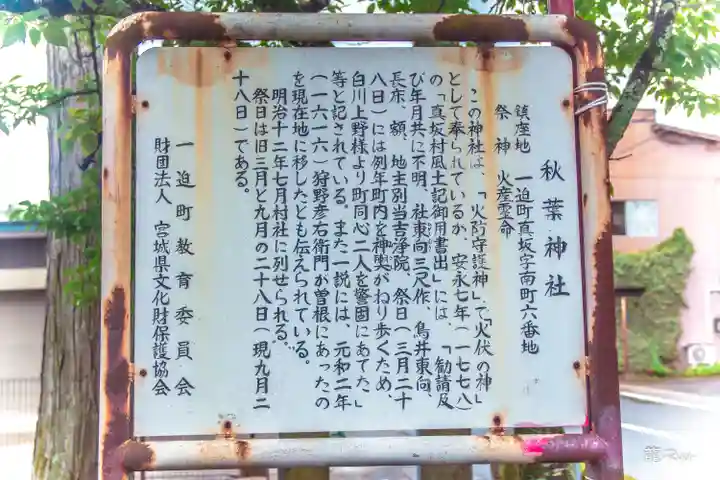 秋葉神社
鎮座地 一迫町真坂字南町六番地
祭神 火産霊命
この神社は、「火防守護神」で「火伏の神」
として奉られているか、安永七年(一七七八)
の「真坂村風土記御用書出」には、「勧請及
び年月共に不明、社東向三尺作、鳥井東向、
長床、額、地主別当吉浄院、祭日(三月二十
八日)には例年町内を神輿がねり歩くため、
白川上野様より町同心二人を警固にあてた。」
等と記されている。また一説には、元和二年
(一六一六)狩野彦右衛門が曽根にあったの
を現在地に移したとも伝えられている。
明治十二年七月村社に列せられる。
祭日は旧三月と九月の二十八日(現九月二
十八日)である。
一迫町教育委員会
財団法人 宮城県文化財保護協会